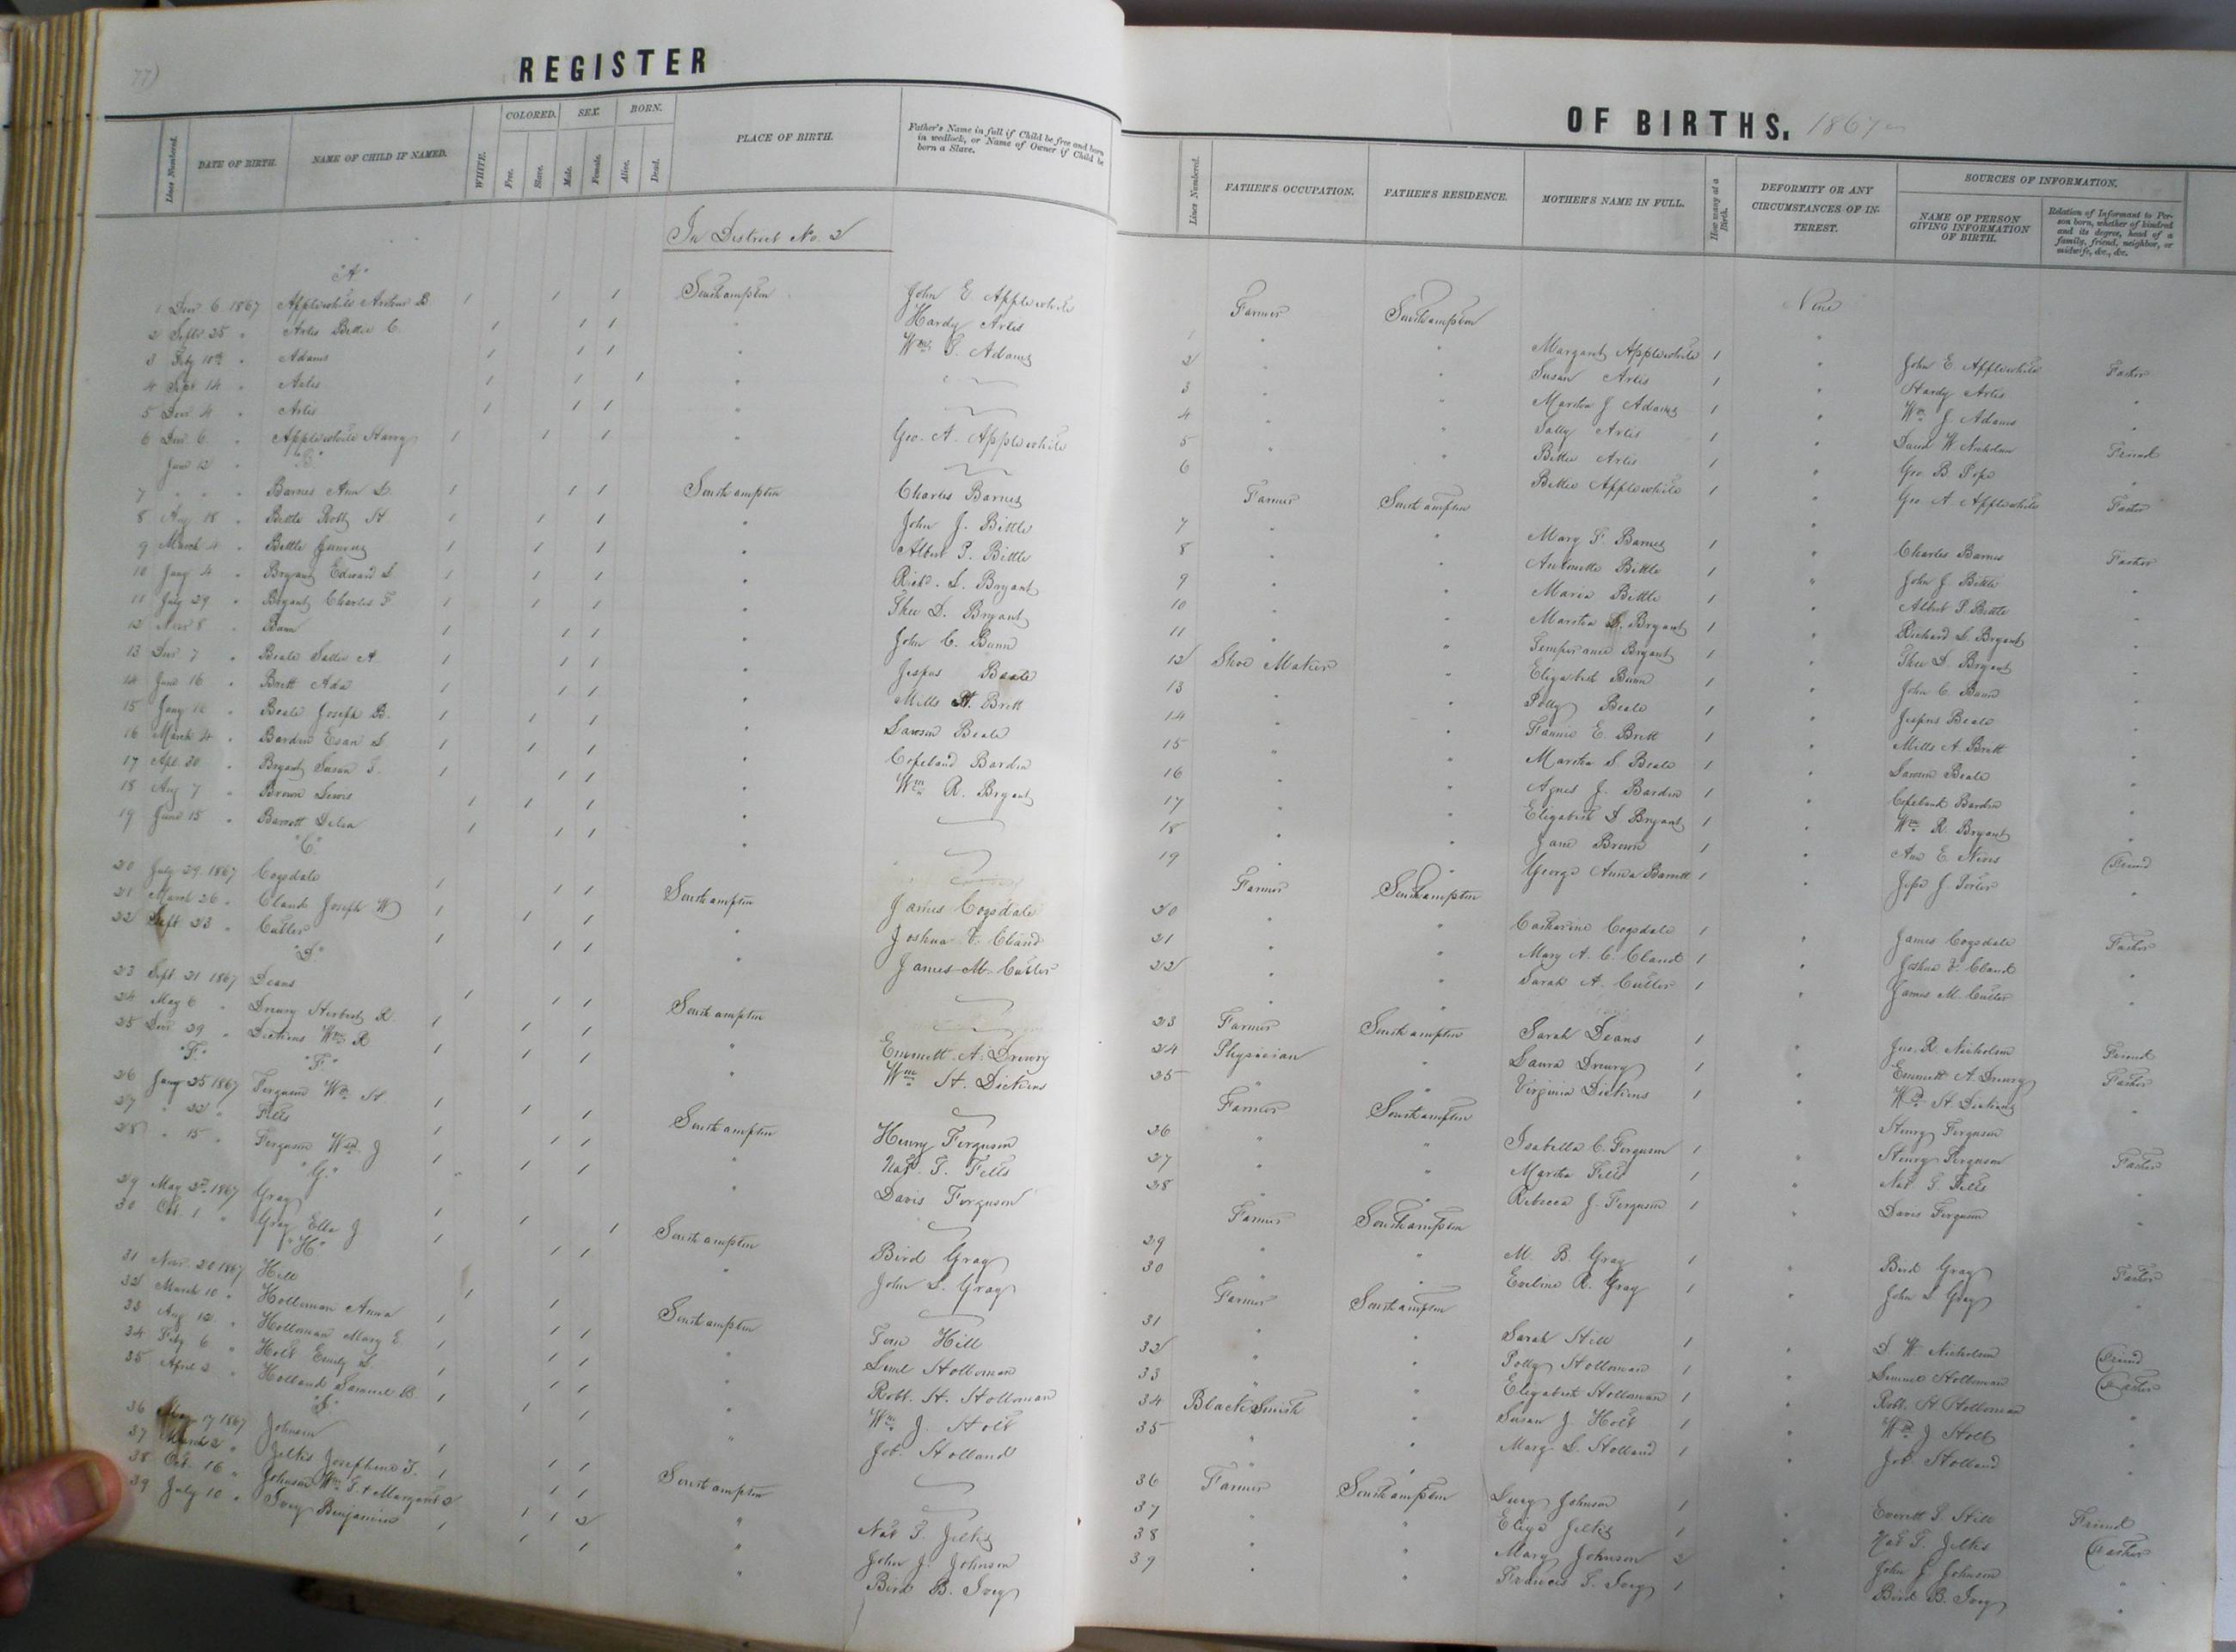 77)
REGISTER
Lines Numbered. DATE OF BIRTH. NAME OF CHILD IF NAMED. WHITE. COLORED. Free. Slave. SEX. Male. Female. BORN. Alive. Dead. PLACE OF BIRTH. Father's Name in full if Child be free and born in wedlock, or Name of Owner if Child be born a Slave.
In District No. 2
"A"
1 Dec 6 1867 Applewhite B 1 1 1 Southampton John E. Applewhite
2 Sept 25 " Artis Bettie C. 1 1 1 " Hardy Artis
3 Feby 10th " Adams 1 1 1 " Wm J. Adams
4 Sept 14 " Artis 1 1 1 "
5 Dec 4 " Artis 1 1 1 "
6 Dec 6 " Applewhite Harry 1 1 1 " Geo. A. Applewhite
June 12 " "B"
7 " " " Barnes Ann 1 1 1 Southampton Charles Barnes
8 Aug 18 " Bittle Robt H 1 1 1 " John J. Bittle
9 March 4 " Bittle 1 1 1 " Albert P. Bittle
10 Jany 4 " Bryant Edward L. 1 1 1 " Richd. L. Bryant
11 July 29 " Bryant Charles F. 1 1 1 " Theo D. Bryant
12 Nov 8 " Bunn 1 1 1 " John C. Bunn
13 Dec 7 " Beale Sallie A. 1 1 1 " Beale
14 June 16 " Brett Ada 1 1 1 " Mills Brett
15 Jany " Beale Joseph B. 1 1 1 " Lawson Beale
16 March 4 " Barden L. 1 1 1 " Copeland Barden
17 Apl. 30 " Bryant Susan 1 1 1 " Wm R. Bryant
18 Aug 7 " Brown Lewis 1 1 1 "
19 June 15 " Barrett Delia 1 1 1 "
"C"
20 July 29 1867 Cogsdale 1 1 1 Southampton James Cogsdale
21 March 26 " Claud Joseph W 1 1 1 " Joshua Claud
22 Sept 23 " Cutler 1 1 1 " James M. Cutler
"D"
23 Sept. 21 1867 Deans 1 1 1 Southampton
24 May 6 " Drewry Herbert R. 1 1 1 " Emmett A. Drewry
25 Dec 29 " Dickens Wm R 1 1 1 " Wm H. Dickens
"F" "F"
26 Jany 25 1867 Ferguson Wm H 1 1 1 Southampton Henry Ferguson
27 " 22 " Fells 1 1 1 " Nat. T. Fells
28 " 15 " Ferguson Wm J 1 1 1 " Davis Ferguson
"G"
29 May 1867 Gray 1 1 1 Southampton Bird Gray
30 Oct. 1 " Gray Ella J 1 1 1 " John L. Gray
"H"
31 Nov. 20 1867 Hill 1 1 Southampton Tom Hill
32 March 10 " Holloman Anna 1 1 1 " Leml Holloman
33 Aug 12 " Holloman Mary E. 1 1 1 " Robt. H. Holloman
34 Feby 6 " Holt Emily S. 1 1 1 " Wm J. Holt
35 April 2 " Holland Samuel B. 1 1 1 " Job. Holland
"J"
36 17 1867 Johnson 1 1 1 Southampton
37 March 2 " Jelks Josephine T. 1 1 1 " Nat T. Jelks
38 Oct. 16 " Johnson Wm T. & Margaret 2 1 1 2 " John J. Johnson
39 July 10 " Ivey Benjamin 1 1 1 " Bird B. Ivey
OF BIRTHS. 1867
Lines Numbered. FATHER'S OCCUPATION. FATHER'S RESIDENCE. MOTHER'S NAME IN FULL. How many at a Birth. DEFORMITY OR ANY CIRCUMSTANCES OF INTEREST. SOURCES OF INFORMATION. NAME OF PERSON GIVING INFORMATION OF BIRTH. Relation of Informant to Person born, whether of kindred and its degree, head of a family, friend, neighbor, or midwife, &c., &c.
Farmer Southampton None
1 " " Margaret Applewhite 1 " John E. Applewhite Father
2 " " Susan Artis 1 " Hardy Artis "
3 " " Martha J Adams 1 " Wm J Adams "
4 " " Sally Artis 1 " David W Nicholson Friend
5 " " Bettie Artis 1 " Geo B Pope "
6 Bettie Applewhite 1 " Geo A Applewhite Father
Farmer Southampton
7 " " Mary F. Barnes 1 " Charles Barnes Father
8 " " Antonette Bittle 1 " John J. Bittle "
9 " " Maria Bittle 1 " Albert P. Bittle "
10 " " Martha Bryant 1 " Richard L. Bryant "
11 " " Temperance Bryant 1 " Theo D. Bryant "
12 Shoe Maker " Elizabeth Bunn 1 " John C. Bunn "
13 " " Polly Beale 1 " Beale "
14 " " Fannie E. Brett 1 " Mills A. Brett "
15 " " Martha S. Beale 1 " Lawson Beale "
16 " Agnes J. Barden 1 " Copeland Barden "
17 " " Elizabeth Bryant 1 " Wm R. Bryant "
18 " " Jane Brown 1 " Ann E. Friend
19 " " George Anna Barrett 1 Jesse J. Porter "
Farmer Southampton
20 " " Catharine Cogsdale 1 " James Cogsdale Father
21 " " Mary A. C. Claud 1 " Joshua Claud "
22 " " Sarah A. Cutler 1 " James M. Cutler "
23 Farmer Southampton Sarah Deans 1 " Jno. R. Nicholson Friend
24 Physician " Laura Drewry 1 " Emmett A. Drewry Father
25 " " Virginia Dickens 1 " Wm H. Dickens "
Farmer Southampton Henry Ferguson
26 " " Isabella C. Ferguson 1 " Henry Ferguson Father
27 " " Martha Fells 1 " Nat. T. Fells "
28 " " Rebecca J. Ferguson 1 " Davis Ferguson "
Farmer Southampton
29 " " M. B. Gray 1 " Bird Gray Father
30 " " Eveline R. Gray 1 " John L Gray "
Farmer Southampton
31 " " Sarah Hill 1 " D. W. Nicholson Friend
32 " " Polly Holloman 1 Lemuel Holloman Father
33 Elizabeth Holloman 1 Robt. H Holloman "
34 Black Smith " Susan J. Holt 1 Wm J Holt "
35 " " Mary L. Holland 1 " Job Holland "
36 Farmer Southampton Lucy Johnson 1 " Everett Hill Friend
37 " " Eliza Jelks 1 " Nat T. Jelks Father
38 " " Mary Johnson 2 " John J Johnson "
39 " " Frances T. Ivey 1 " Bird B. Ivey "